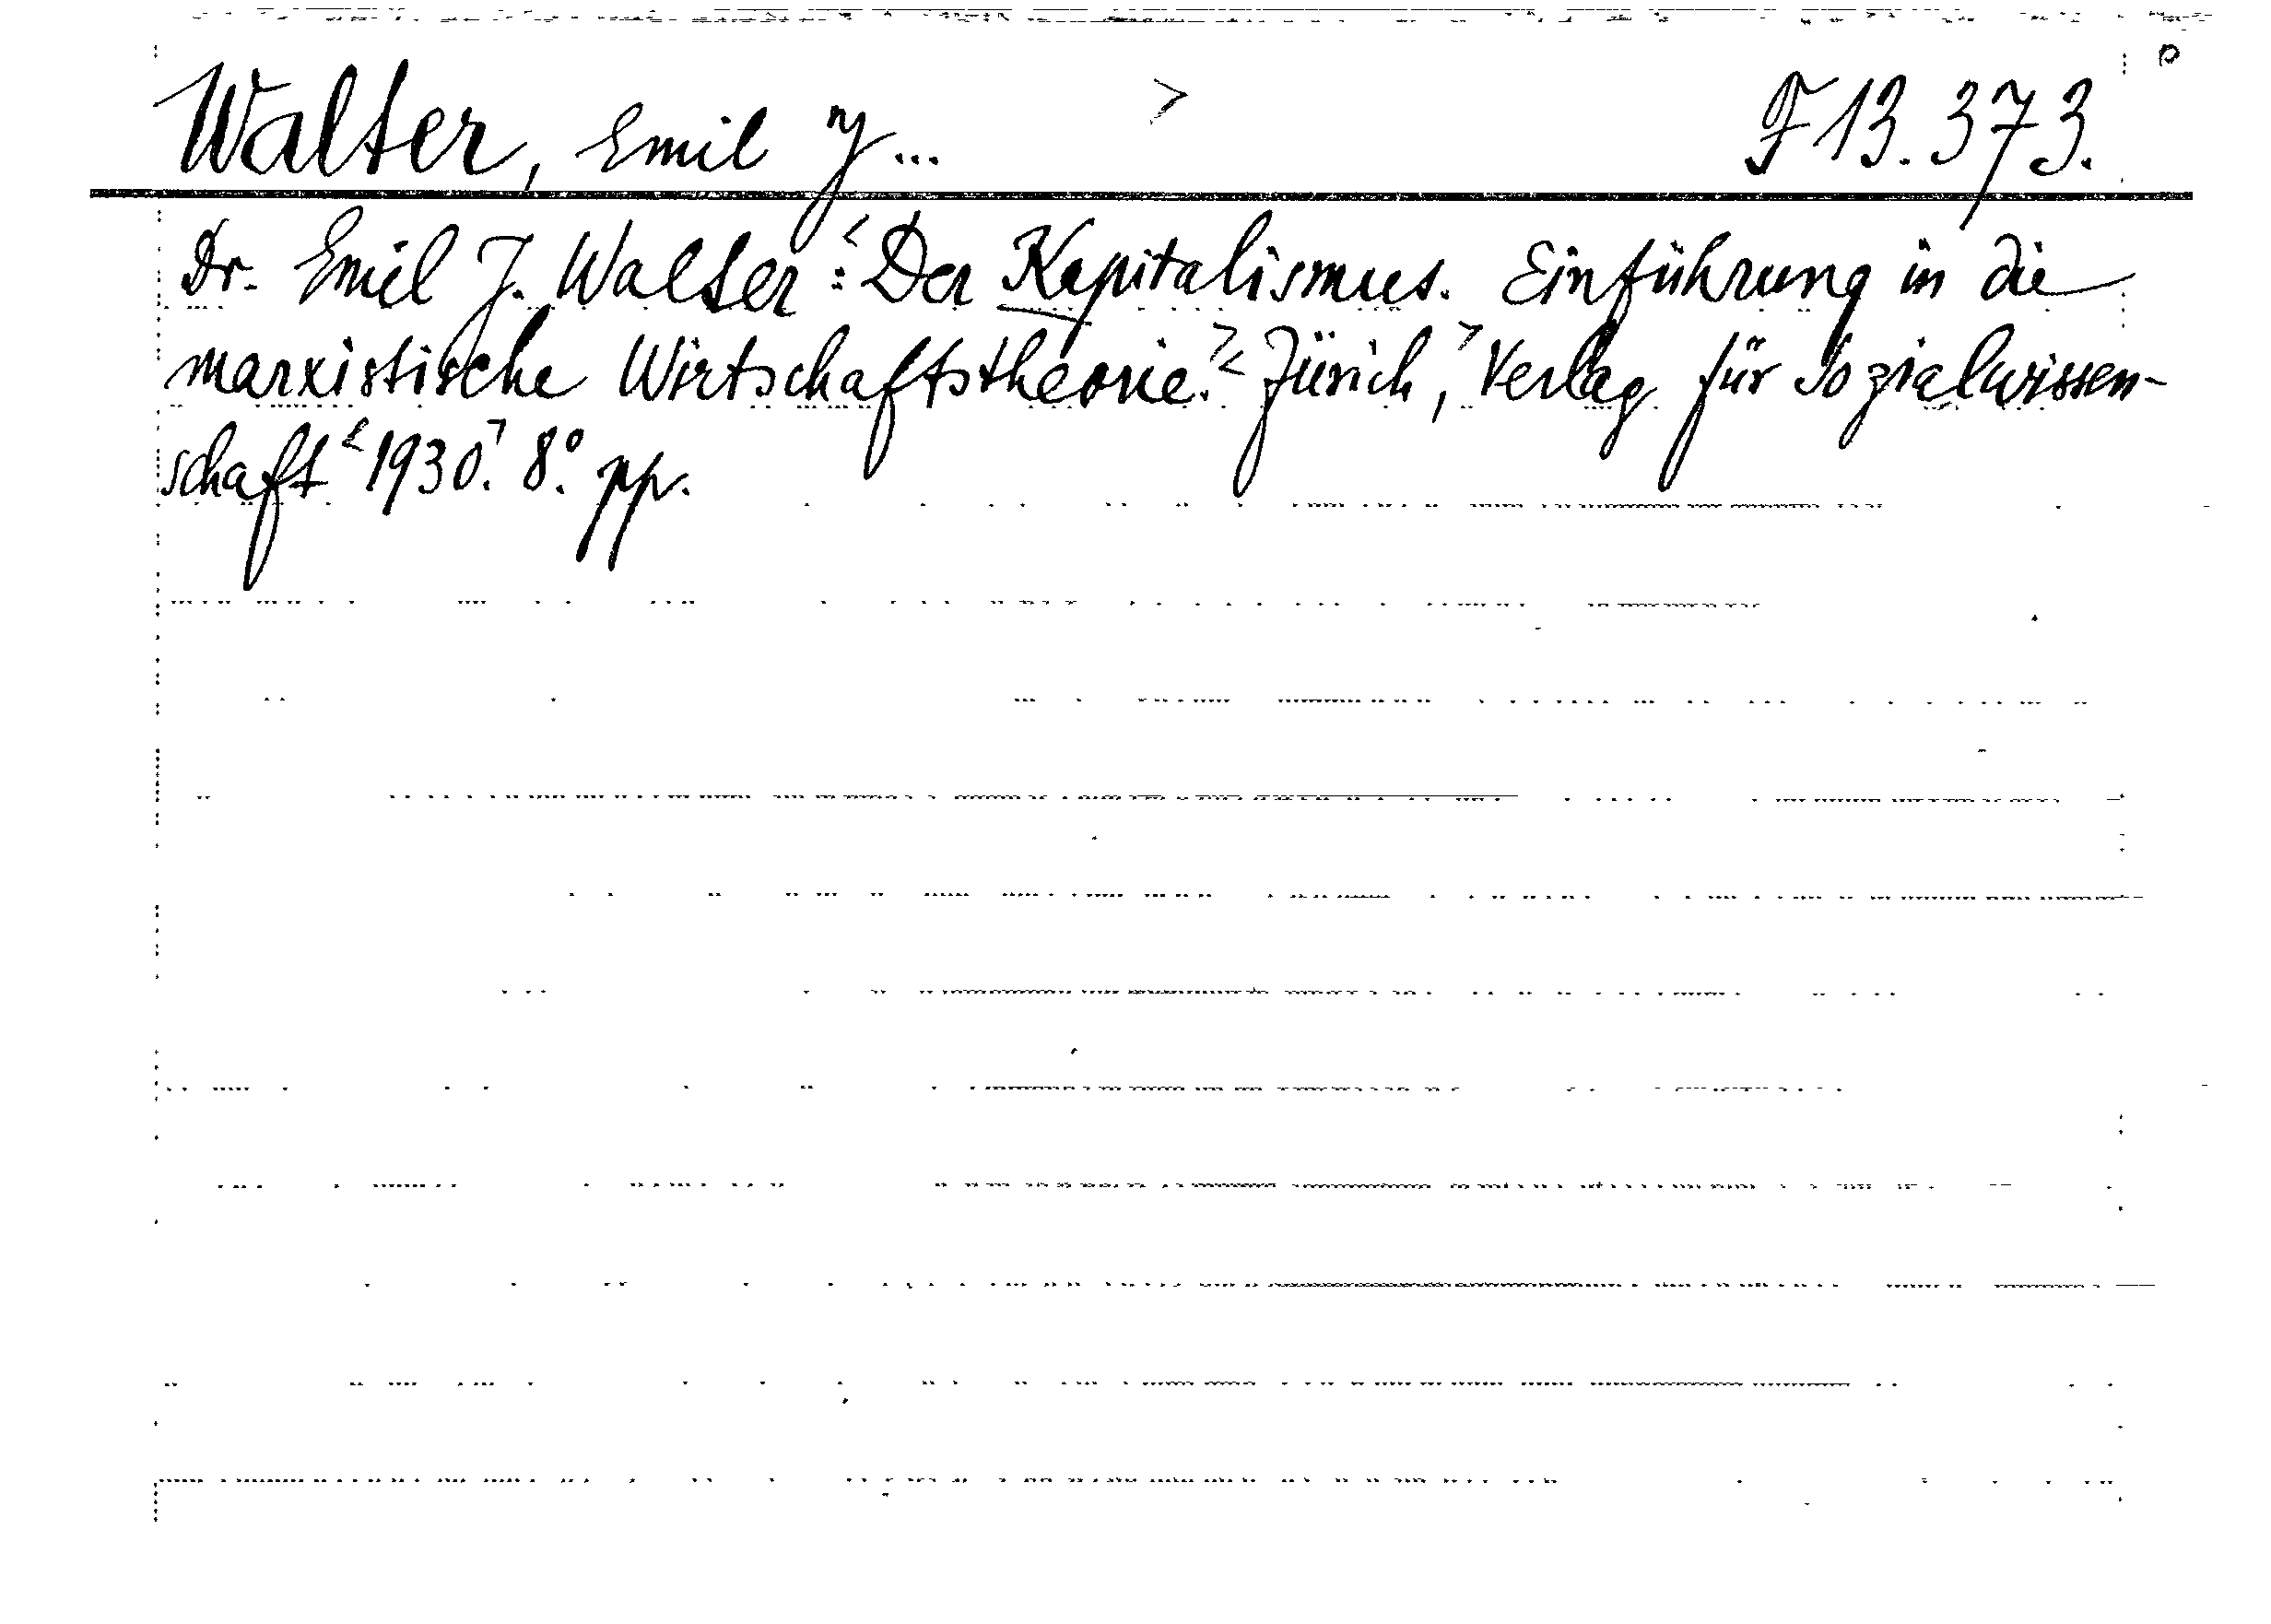 Walter, Emil J... > F 13.373.
Dr. Emil J. Walter:< Der Kapitalismus. Einführung in die
marxistische Wirtschaftstheorie.>< Zürich,> Verlag für Sozialwissen-
schaft < 1930.> 8°. pp.